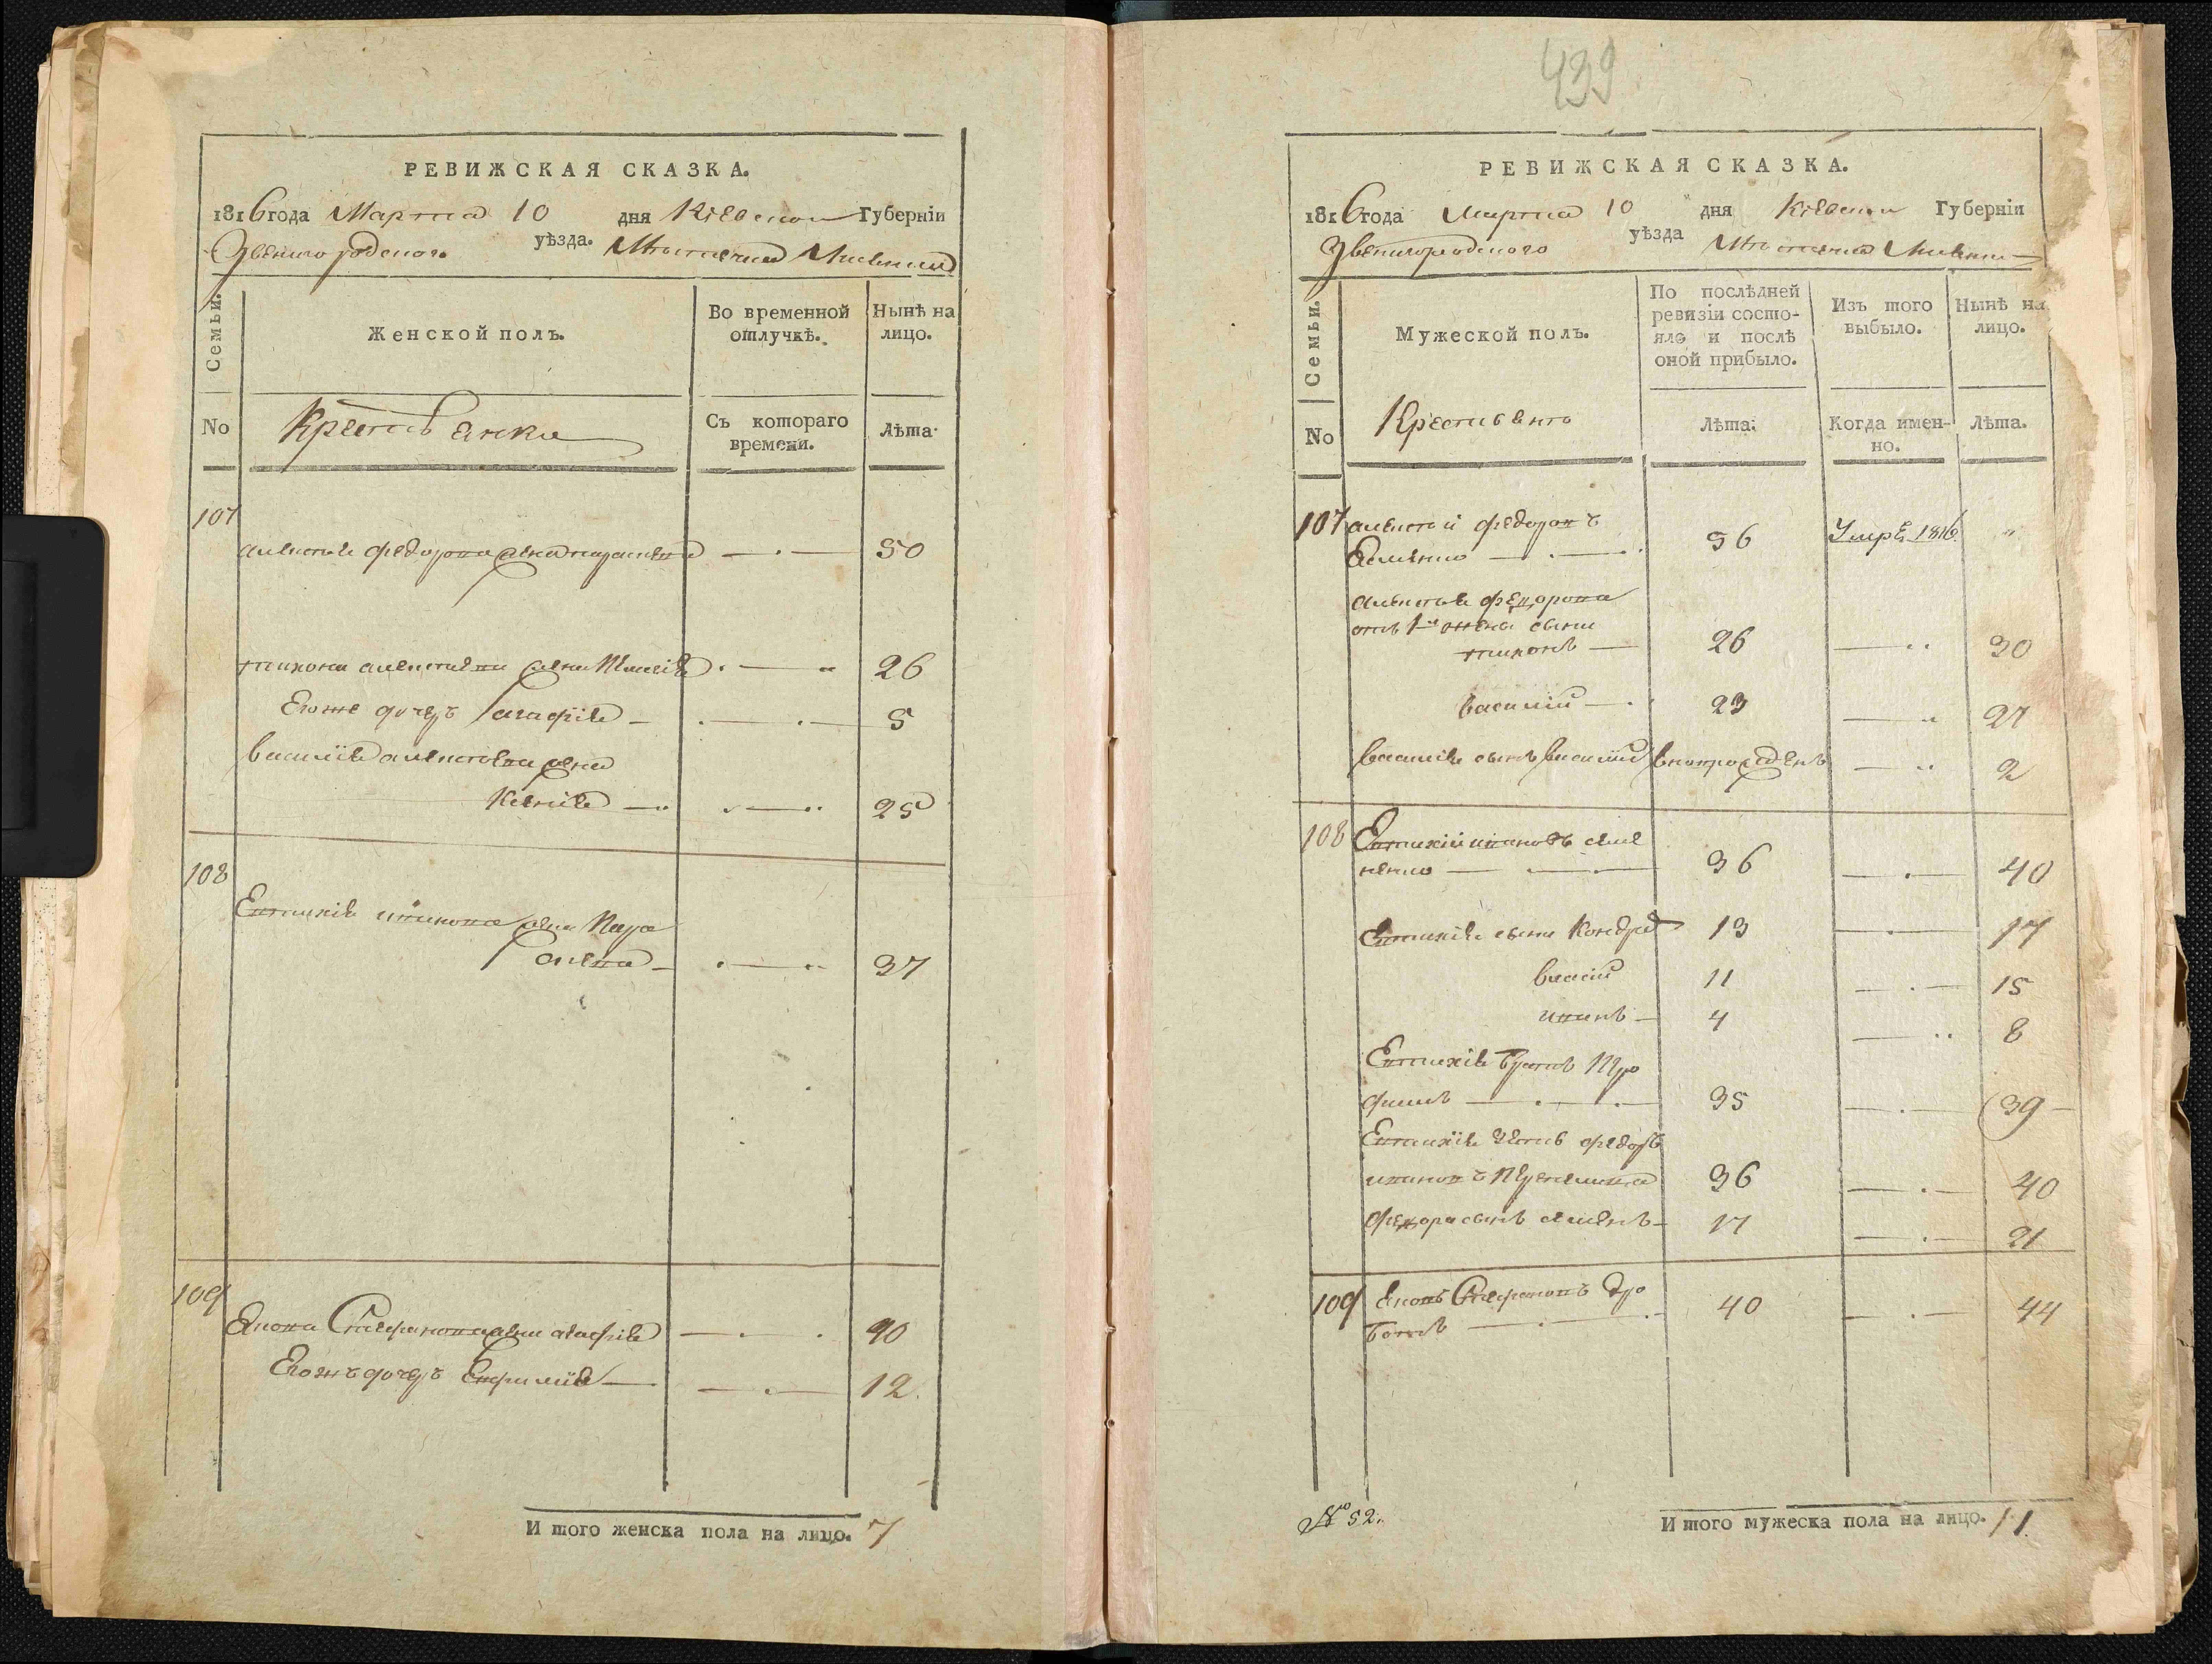 РЕВИЖСКАЯ СКАЗКА.
1816 года Марта 10 дня Кіевской Губерніи
Звенигородского уѣзда. Мѣстечка
Семьи.
Женской полъ.
Во временной отлучкѣ.
Нынѣ на лицо.
No
Крестьянки
Съ котораго времени.
Лѣта.
107
алексѣя федорова жена параскева 50
тихона алексѣева жена 26
Его же дочерь агафія 5
василія алексѣева жена
Ксенія 25
108
Евтихія иванова жена Пара
скева 37
109
Якова Стефанова жена агафія 40
Егожъ дочерь Евфимія 12
И того женска пола на лицо. 7
439
РЕВИЖСКАЯ СКАЗКА.
1816 года Марта 10 дня Кіевской Губерніи
Звенигородского уѣзда Мѣстечка
Семьи.
Мужеской полъ.
По послѣдней ревизіи состояло и послѣ оной прибыло.
Изъ того выбыло.
Нынѣ на лицо.
No
Крестьянъ
Лѣта.
Когда именно.
Лѣта.
107 алексѣй федоровъ
56 Умрѣ 1816
алексѣя федорова
отъ 1й жены сыни
тихонъ 26 30
василій 23 27
василія сынъ василій вновърожденъ 2
108 Евтихій ивановъ семе
ненко 36 40
Евтихія сыни Кондрат 13 17
василій 11 15
иванъ 4 8
Евтихія братъ Тро
фимъ 35 39
Евтихія зять федоръ
ивановъ 36 40
федора сынъ семенъ 17 21
109 Яковъ Стефановъ Дро
ботъ 40 44
№ 52.
И того мужеска пола на лицо. 11.